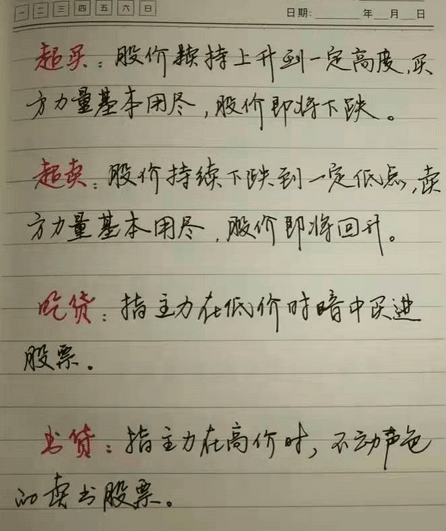 一 二 三 四 五 六 日 日期: 年 月 日
超买：股价持续上升到一定高度，买
方力量基本用尽，股价即将下跌。
超卖：股价持续下跌到一定低点，卖
方力量基本用尽，股价即将回升。
吃货：指主力在低价时暗中买进
股票。
出货：指主力在高价时，不动声色
的卖出股票。